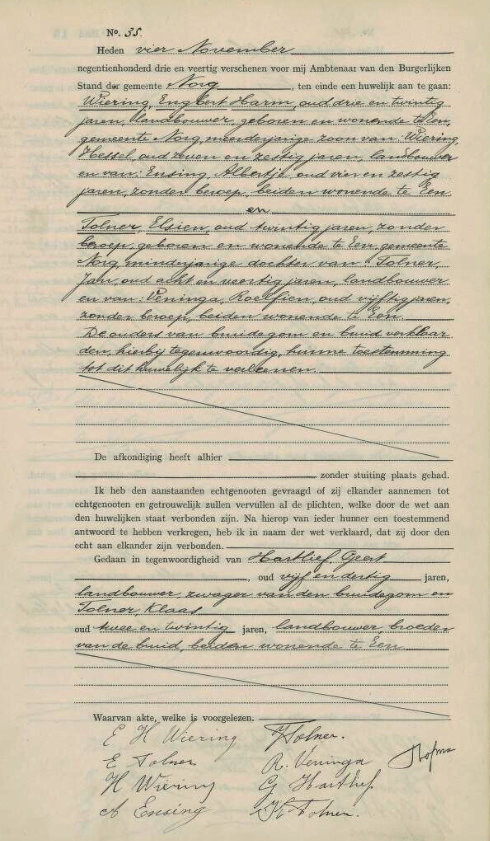 No. 55.
Heden vier November
negentienhonderd drie en veertig verschenen voor mij Ambtenaar van den Burgerlijken
Stand der gemeente Norg, ten einde een huwelijk aan te gaan:
Wiering, Engbert Harm, oud drie en twintig
jaren, landbouwer, geboren en wonende te Een,
gemeente Norg, meerderjarige zoon van: Wiering,
Hessel, oud zeven en zestig jaren, landbouwer
en van: Ensing, Albertje, oud vier en zestig
jaren, zonder beroep, beiden wonende te Een
en
Tolner, Elsien, oud twintig jaren, zonder
beroep, geboren en wonende te Een, gemeente
Norg, minderjarige dochter van: Tolner,
Jan, oud acht en veertig jaren, landbouwer
en van: Veninga, Roelfien, oud vijftig jaren,
zonder beroep, beiden wonende te Een.
De ouders van bruidegom en bruid verklaar
den, hierbij tegenwoordig, hunne toestemming
tot dit huwelijk te verleenen.
De afkondiging heeft alhier
zonder stuiting plaats gehad.
Ik heb den aanstaanden echtgenooten gevraagd of zij elkander aannemen tot
echtgenooten en getrouwelijk zullen vervullen al de plichten, welke door de wet aan
den huwelijken staat verbonden zijn. Na hierop van ieder hunner een toestemmend
antwoord te hebben verkregen, heb ik in naam der wet verklaard, dat zij door den
echt aan elkander zijn verbonden.
Gedaan in tegenwoordigheid van Hartlief, Geert
, oud vijf en dertig jaren,
landbouwer, zwager van den bruidegom en
Tolner, Klaas
oud twee en twintig jaren, landbouwer, broeder
van de bruid, beiden wonende te Een
Waarvan akte, welke is voorgelezen.
E H Wiering J Tolner.
E Tolner R. Veninga Hofma
H Wiering G Hartlief
A Ensing K Tolner.